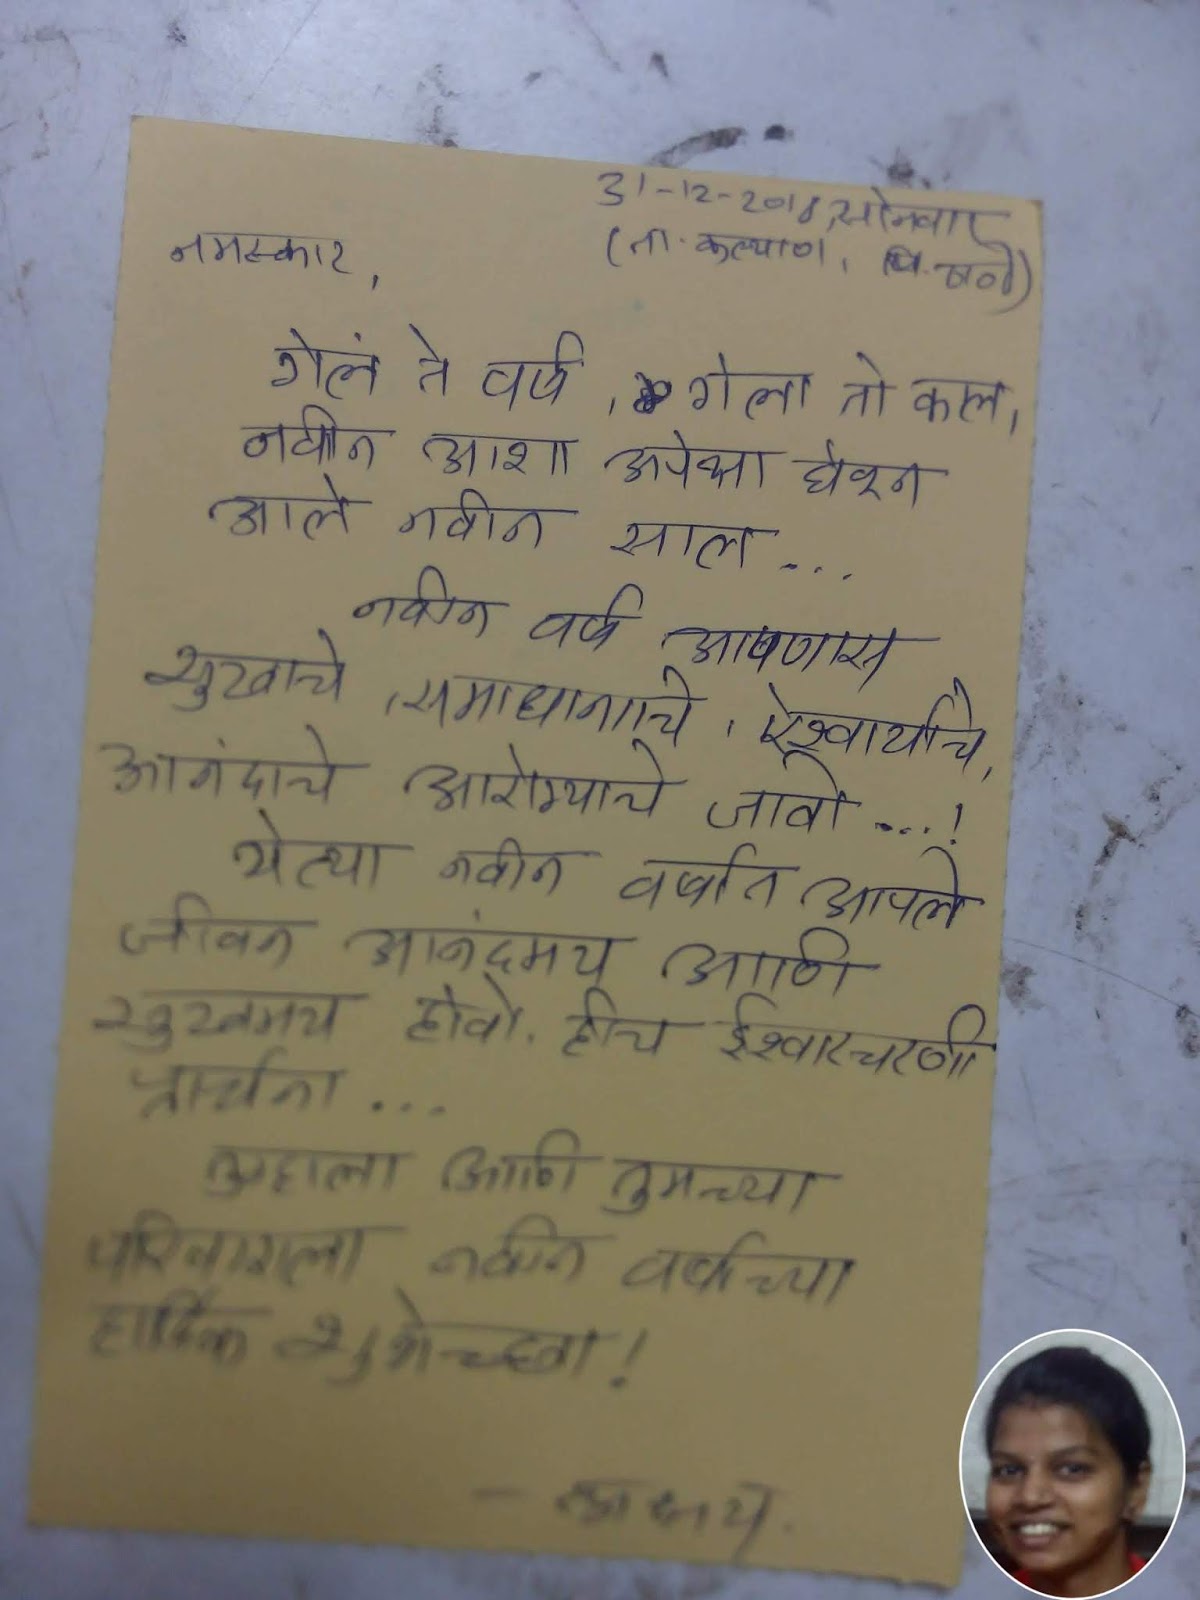 31-12-2018, सोमवार
(ता. कल्याण, जि. ठाणे)
नमस्कार,
गेलं ते वर्ष, गेला तो काल,
नवीन आशा अपेक्षा घेऊन
आले नवीन साल...
नवीन वर्ष आपणास
सुखाचे, समाधानाचे, ऐश्वार्याचे,
आनंदाचे आरोग्याचे जावो ....!
येत्या नवीन वर्षात आपले
जीवन आनंदमय आणि
सुखमय होवो. हीच ईश्वारचरणी
प्रार्थना ...
तुम्हाला आणि तुमच्या
परिवाराला नवीन वर्षाच्या
हार्दिक शुभेच्छा!